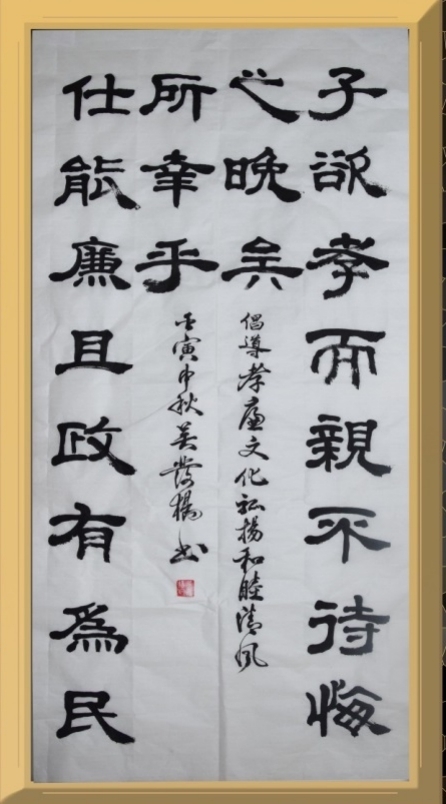 子欲孝而親不待悔
之晚矣
仕能廉且政有為民
所幸乎
倡導孝廉文化弘揚和睦清風
壬寅中秋吴發楊书